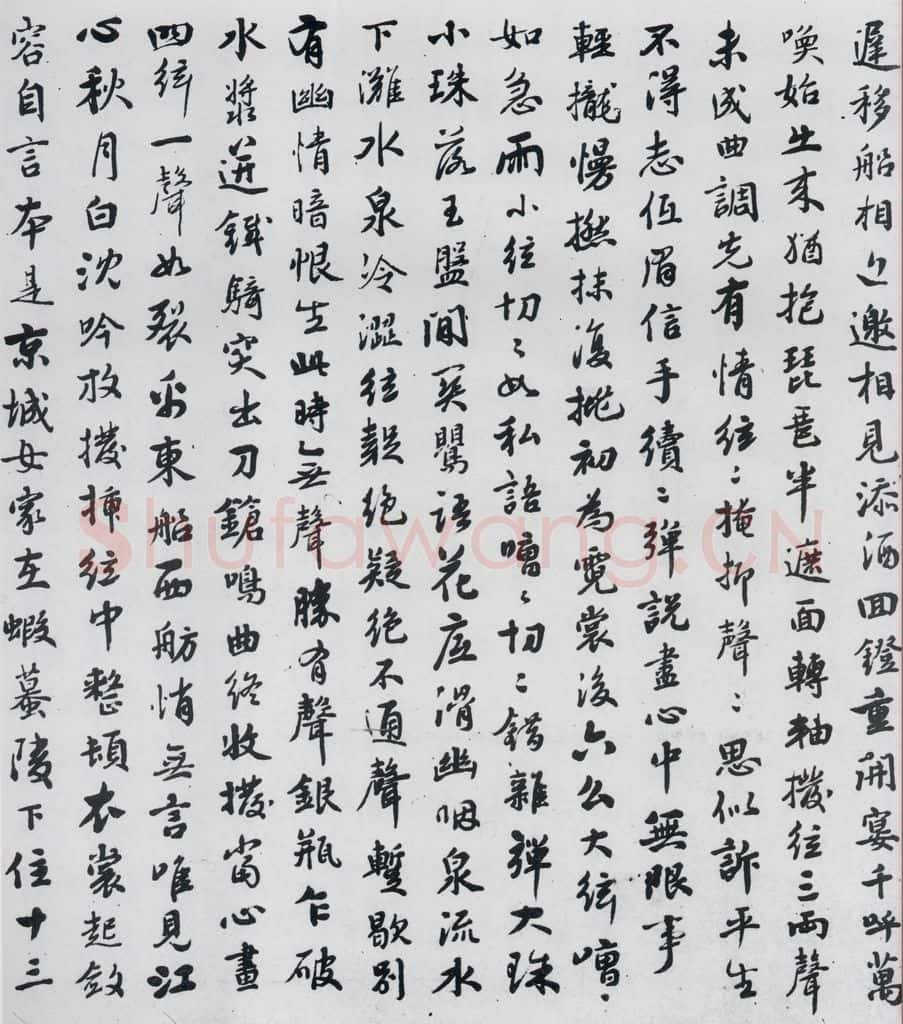 遲移船相近邀相見添酒回鐙重開宴千呼萬
喚始出來猶抱琵琶半遮面轉軸撥絃三兩聲
未成曲調先有情絃〻掩抑聲〻思似訴平生
不得志低眉信手續〻彈說盡心中無限事
輕攏慢撚抹復挑初為霓裳後六么大絃嘈〻
如急雨小絃切〻如私語嘈〻切〻錯雜彈大珠
小珠落玉盤間關鶯語花底滑幽咽泉流水
下灘水泉冷澀絃疑絕疑絕不通聲暫歇別
有幽情暗恨生此時無聲勝有聲銀瓶乍破
水漿迸鐵騎突出刀鎗鳴曲終收撥當心畫
四絃一聲如裂帛東船西舫悄無言唯見江
心秋月白沈吟放撥插絃中整頓衣裳起斂
容自言本是京城女家在蝦蟇陵下住十三
Shufawang.CN